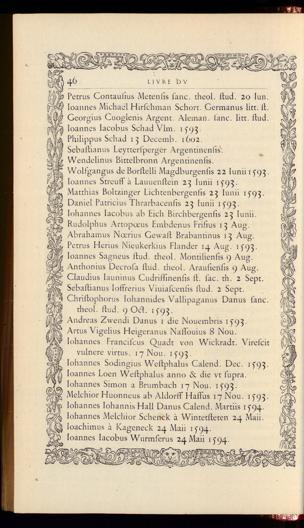 46 LIVRE DV
Petrus Contausius Metensis sanc. theol. stud. 20 Iun.
Ioannes Michael Hirschman Schort. Germanus litt. st.
Georgius Cuoglenis Argent. Aleman. sanc. litt. stud.
Ioannes Iacobus Schad Vlm. 1593.
Philippus Schad 13 Decemb. 1602.
Sebastianus Leyttersperger Argentinensis.
Wendelinus Bittelbronn Argentinensis.
Wolfgangus de Borstelli Magdburgensis 22 Iunii 1593.
Ioannes Streuff à Lauuenstein 23 Iunii 1593.
Matthias Boltzinger Lichtenbergensis 23 Iunii 1593.
Daniel Patricius Thrarbacensis 23 Iunii 1593.
Iohannes Iacobus ab Eich Birchbergensis 23 Iunii.
Rudolphus Artopœus Embdenus Frisus 13 Aug.
Abrahamus Nœrius Gewalt Brabantinus 13 Aug.
Petrus Herius Nieukerkius Flander 14 Aug. 1593.
Ioannes Sagneus stud. theol. Montiliensis 9 Aug.
Anthonius Decrosa stud. theol. Arausiensis 9 Aug.
Claudius Iauninus Cudrissinensis st. sac. th. 2 Sept.
Sebastianus Ioffrerius Viuiascensis stud. 2 Sept.
Christophorus Iohannides Vallipaganus Danus sanc.
theol. stud. 9 Oct. 1593.
Andreas Zwendi Danus 1 die Nouembris 1593.
Artus Vigelius Heigeranus Nassouius 8 Nou.
Iohannes Franciscus Quadt von Wickradt. Virescit
vulnere virtus. 17 Nou. 1593.
Iohannes Sodingius Westphalus Calend. Dec. 1593.
Ioannes Loen Westphalus anno & die vt supra.
Iohannes Simon a Brumbach 17 Nou. 1593.
Melchior Huonneus ab Aldorff Hassus 17 Nou. 1593.
Iohannes Iohannis Hall Danus Calend. Martiis 1594.
Iohannes Melchior Schenck à Wintetsteten 24 Maii.
Ioachimus à Kageneck 24 Maii 1594.
Ioannes Iacobus Wurmserus 24 Maii 1594.